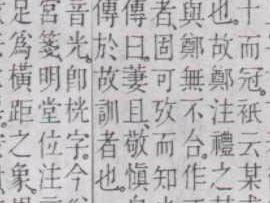 十而冠。祇云某
也。故鄭注禮之
與鄭無不合。作
者。固可攷而知
傳曰。萋且。敬慎
傳於故訓者也。
音光。卽桄字。今
宮箋。明堂位注
足爲橫距之象。